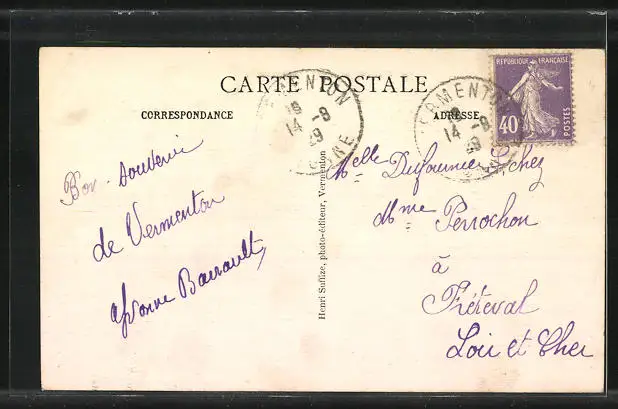 CARTE POSTALE
CORRESPONDANCE
ADRESSE
VERMENTON
18
14 - 8
29
YONNE
VERMENTON
18
14 - 8
29
REPUBLIQUE FRANÇAISE
40c
POSTES
Bon souvenir
de Vermenton
Yvonne Barrault
Henri Suffize, photo-éditeur, Vermenton
Melle Dufournier chez
Mme Perrochon
à
Fréteval
Loir et Cher